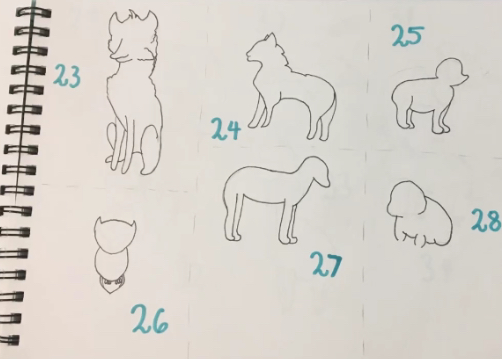 23
24
25
26
27
28